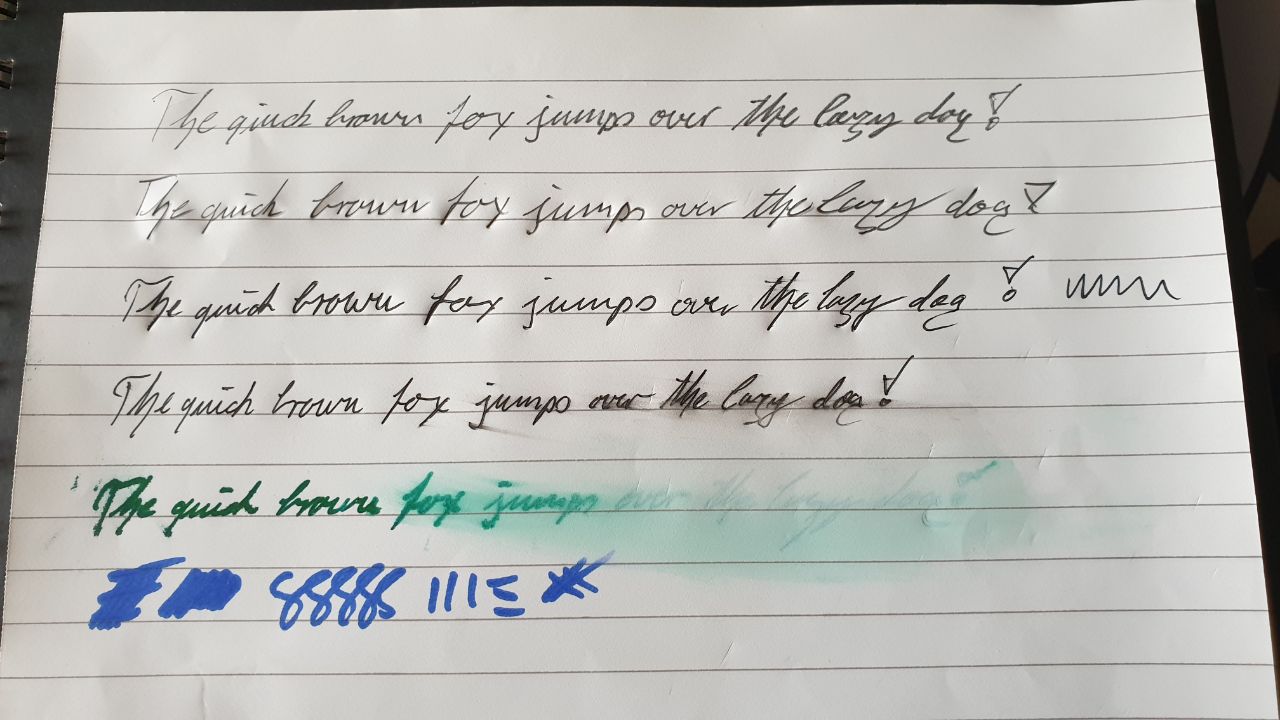 The quick brown fox jumps over the lazy dog!
The quick brown fox jumps over the lazy dog!
The quick brown fox jumps over the lazy dog!
The quick brown fox jumps over the lazy dog!
The quick brown fox jumps over the lazy dog!